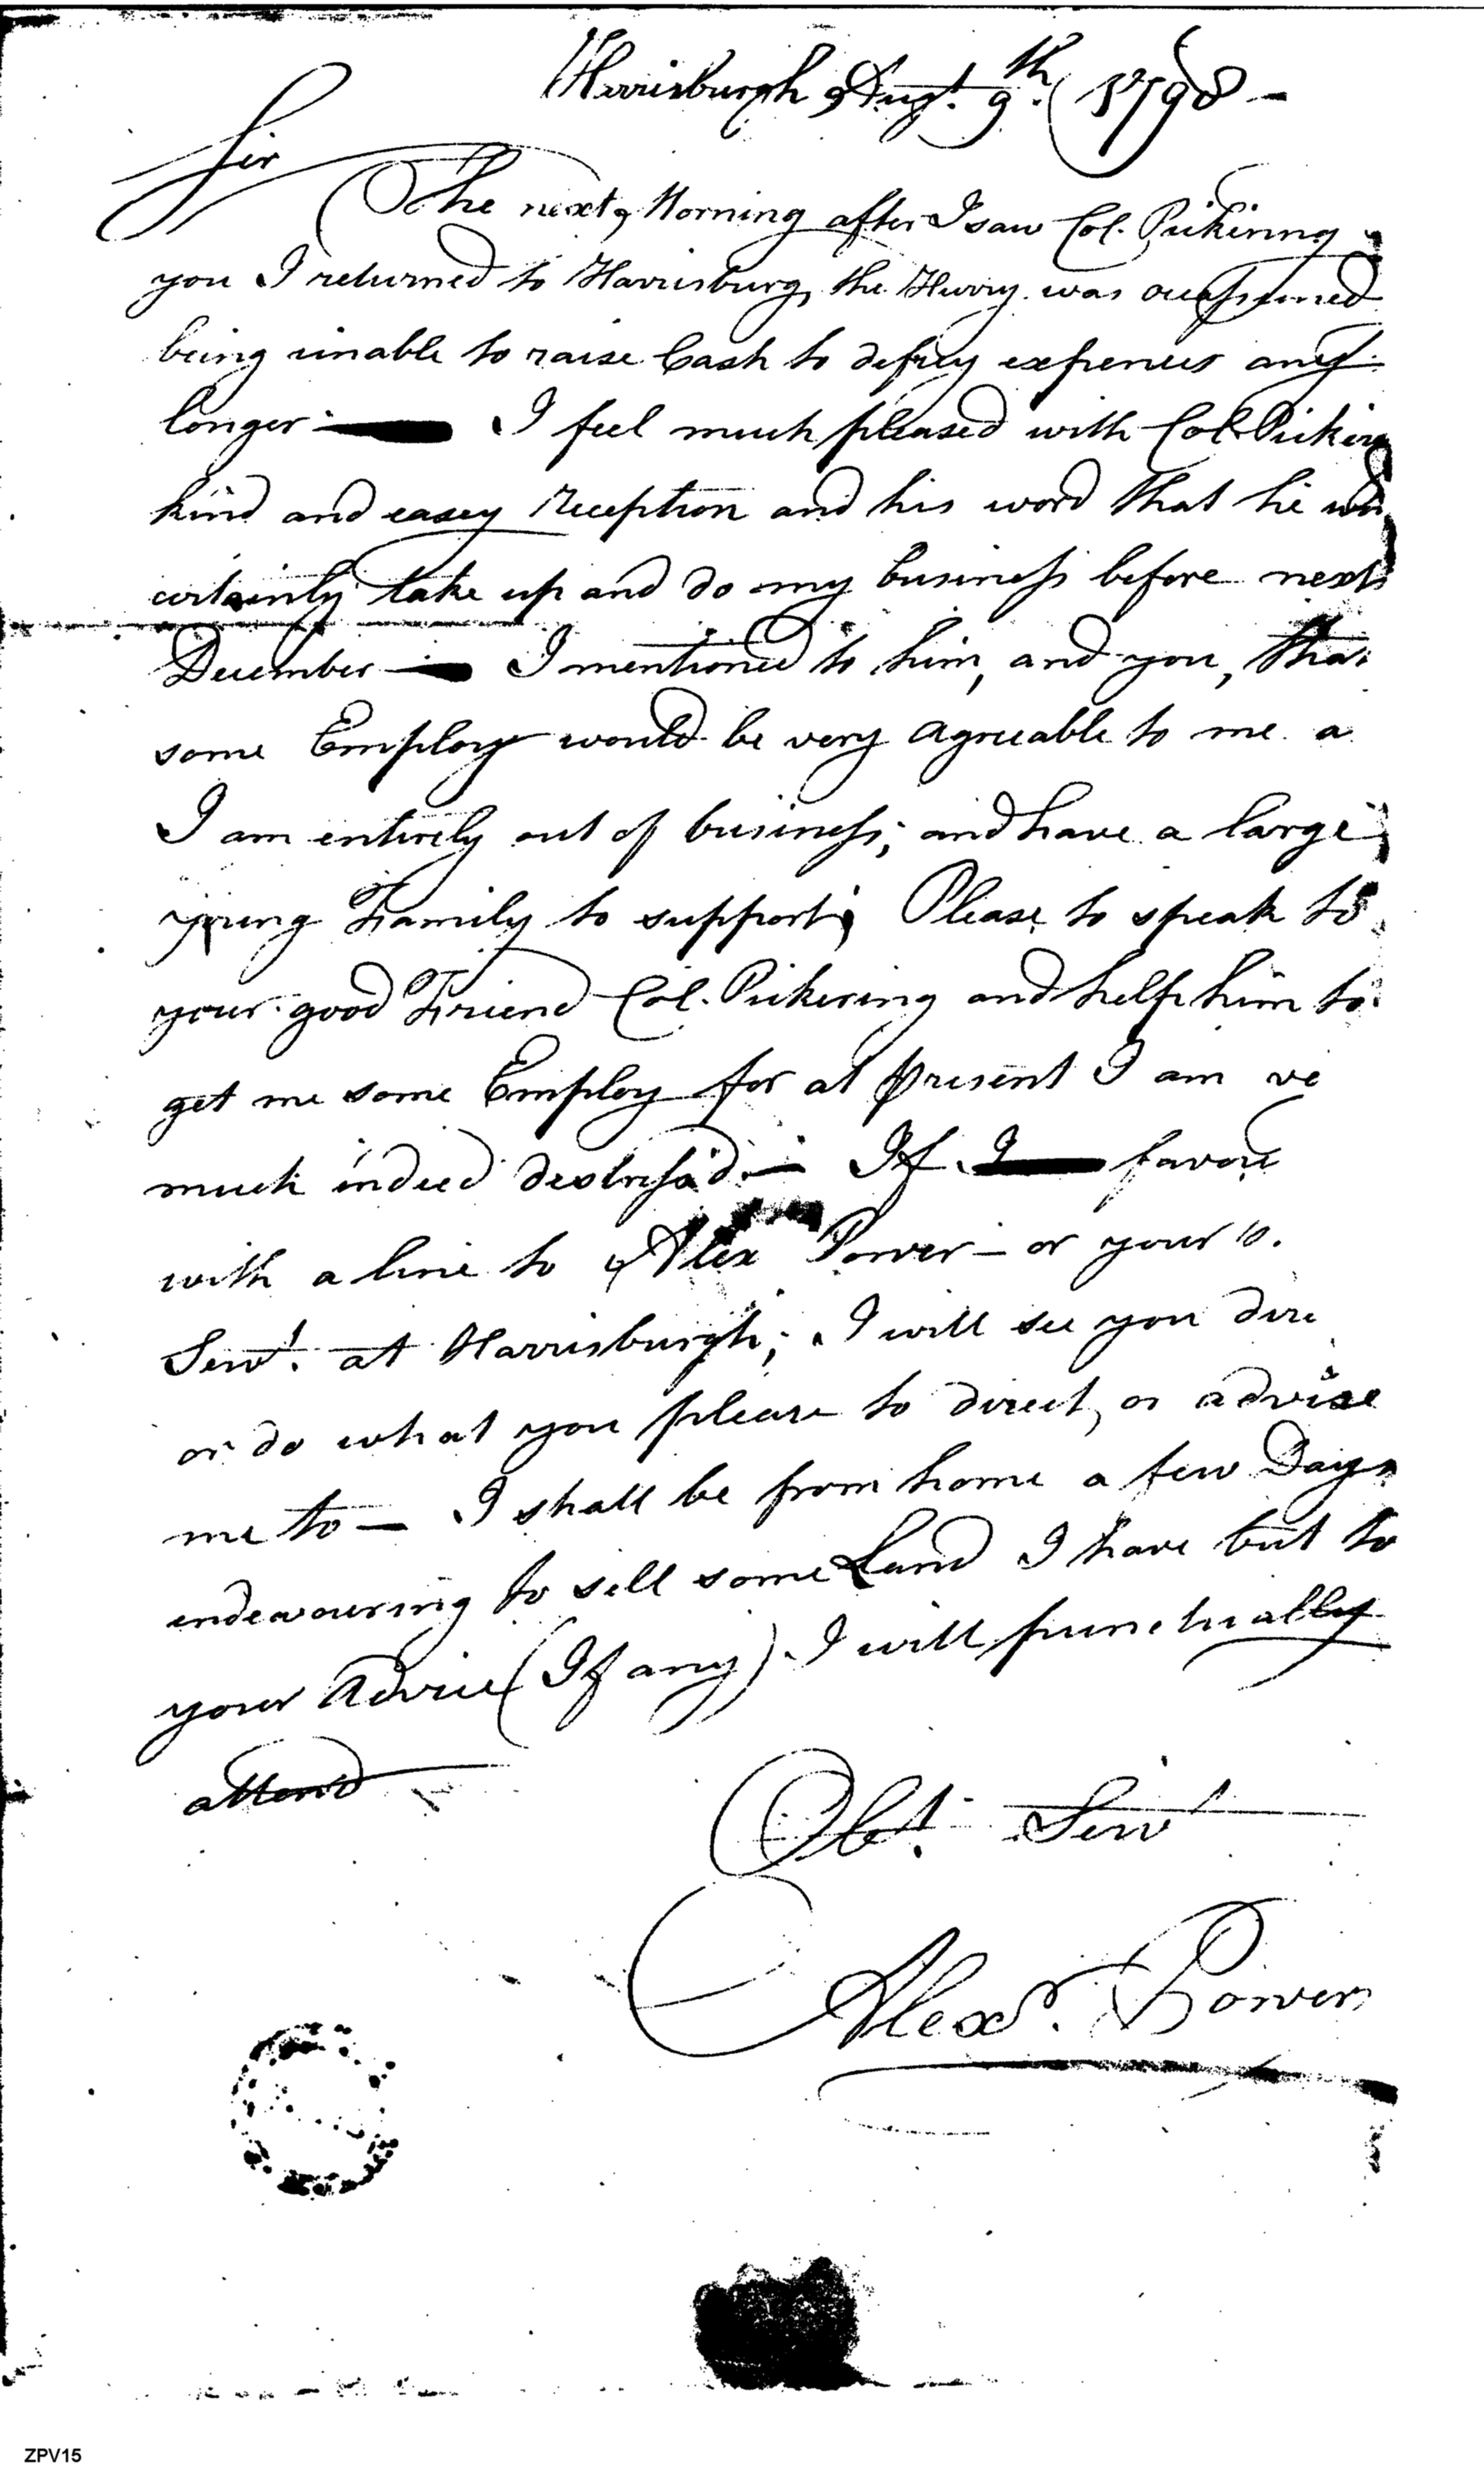 Harrisburgh Augt. 9th. 1798 -
Sir
The next Morning after I saw Col. Pickering &
you I returned to Harrisburg, the Hurry was occassioned
being unable to raise Cash to defray expences any
longer — I feel much pleased with Col. Pickering
kind and easey reception and his word that he
certainly take up and do my business before next
December — I mentioned to him, and you, that
some Employ would be very agreeable to me a
I am entirely out of business; and have a large
young Family to support; Please to speak to
your good Friend Col. Pickering and help him to
get me some Employ for at present I am ve
much indeed distress'd. — If I favou
with a line to Alex Power — or your
Servt. at Harrisburgh; I will see you dire
or do what you please to direct, or advise
me to — I shall be from home a few Days
endeavouring to sell some Land I have but to
your Advice (If any) I will punctually
attend
Obt. Servt
Alexr. Power
ZPV15